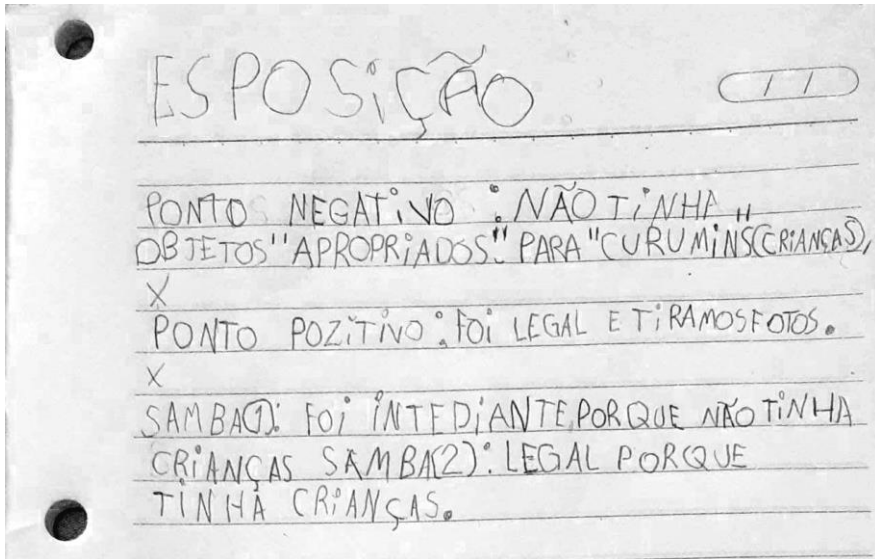 ESPOSIÇÃO
/ /
PONTO NEGATIVO : NÃO TINHA
OBJETOS "APROPRIADOS" PARA "CURUMINS(CRIANÇAS)",
X
PONTO POZITIVO : FOI LEGAL E TIRAMOS FOTOS.
X
SAMBA(1): FOI INTEDIANTE, PORQUE NÃO TINHA
CRIANÇAS SAMBA(2): LEGAL PORQUE
TINHA CRIANÇAS.